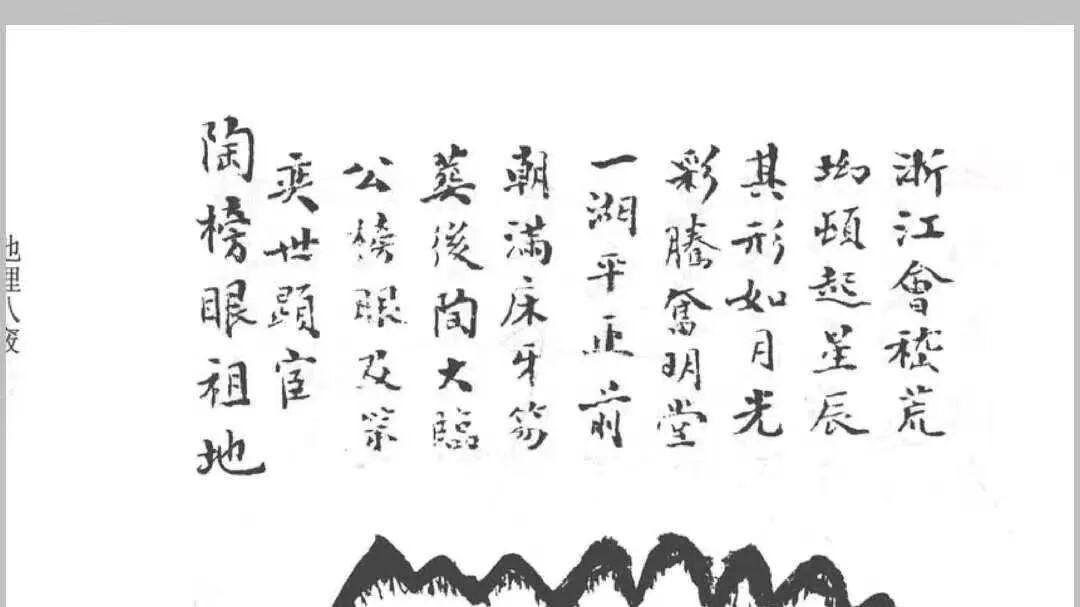 浙江會稽荒
坳頓起星辰
其形如月光
彩騰奮明堂
一湖平正前
朝滿床牙笏
葬後陶大臨
公榜眼及第
奕世顯宦
陶榜眼祖地
地理八竅